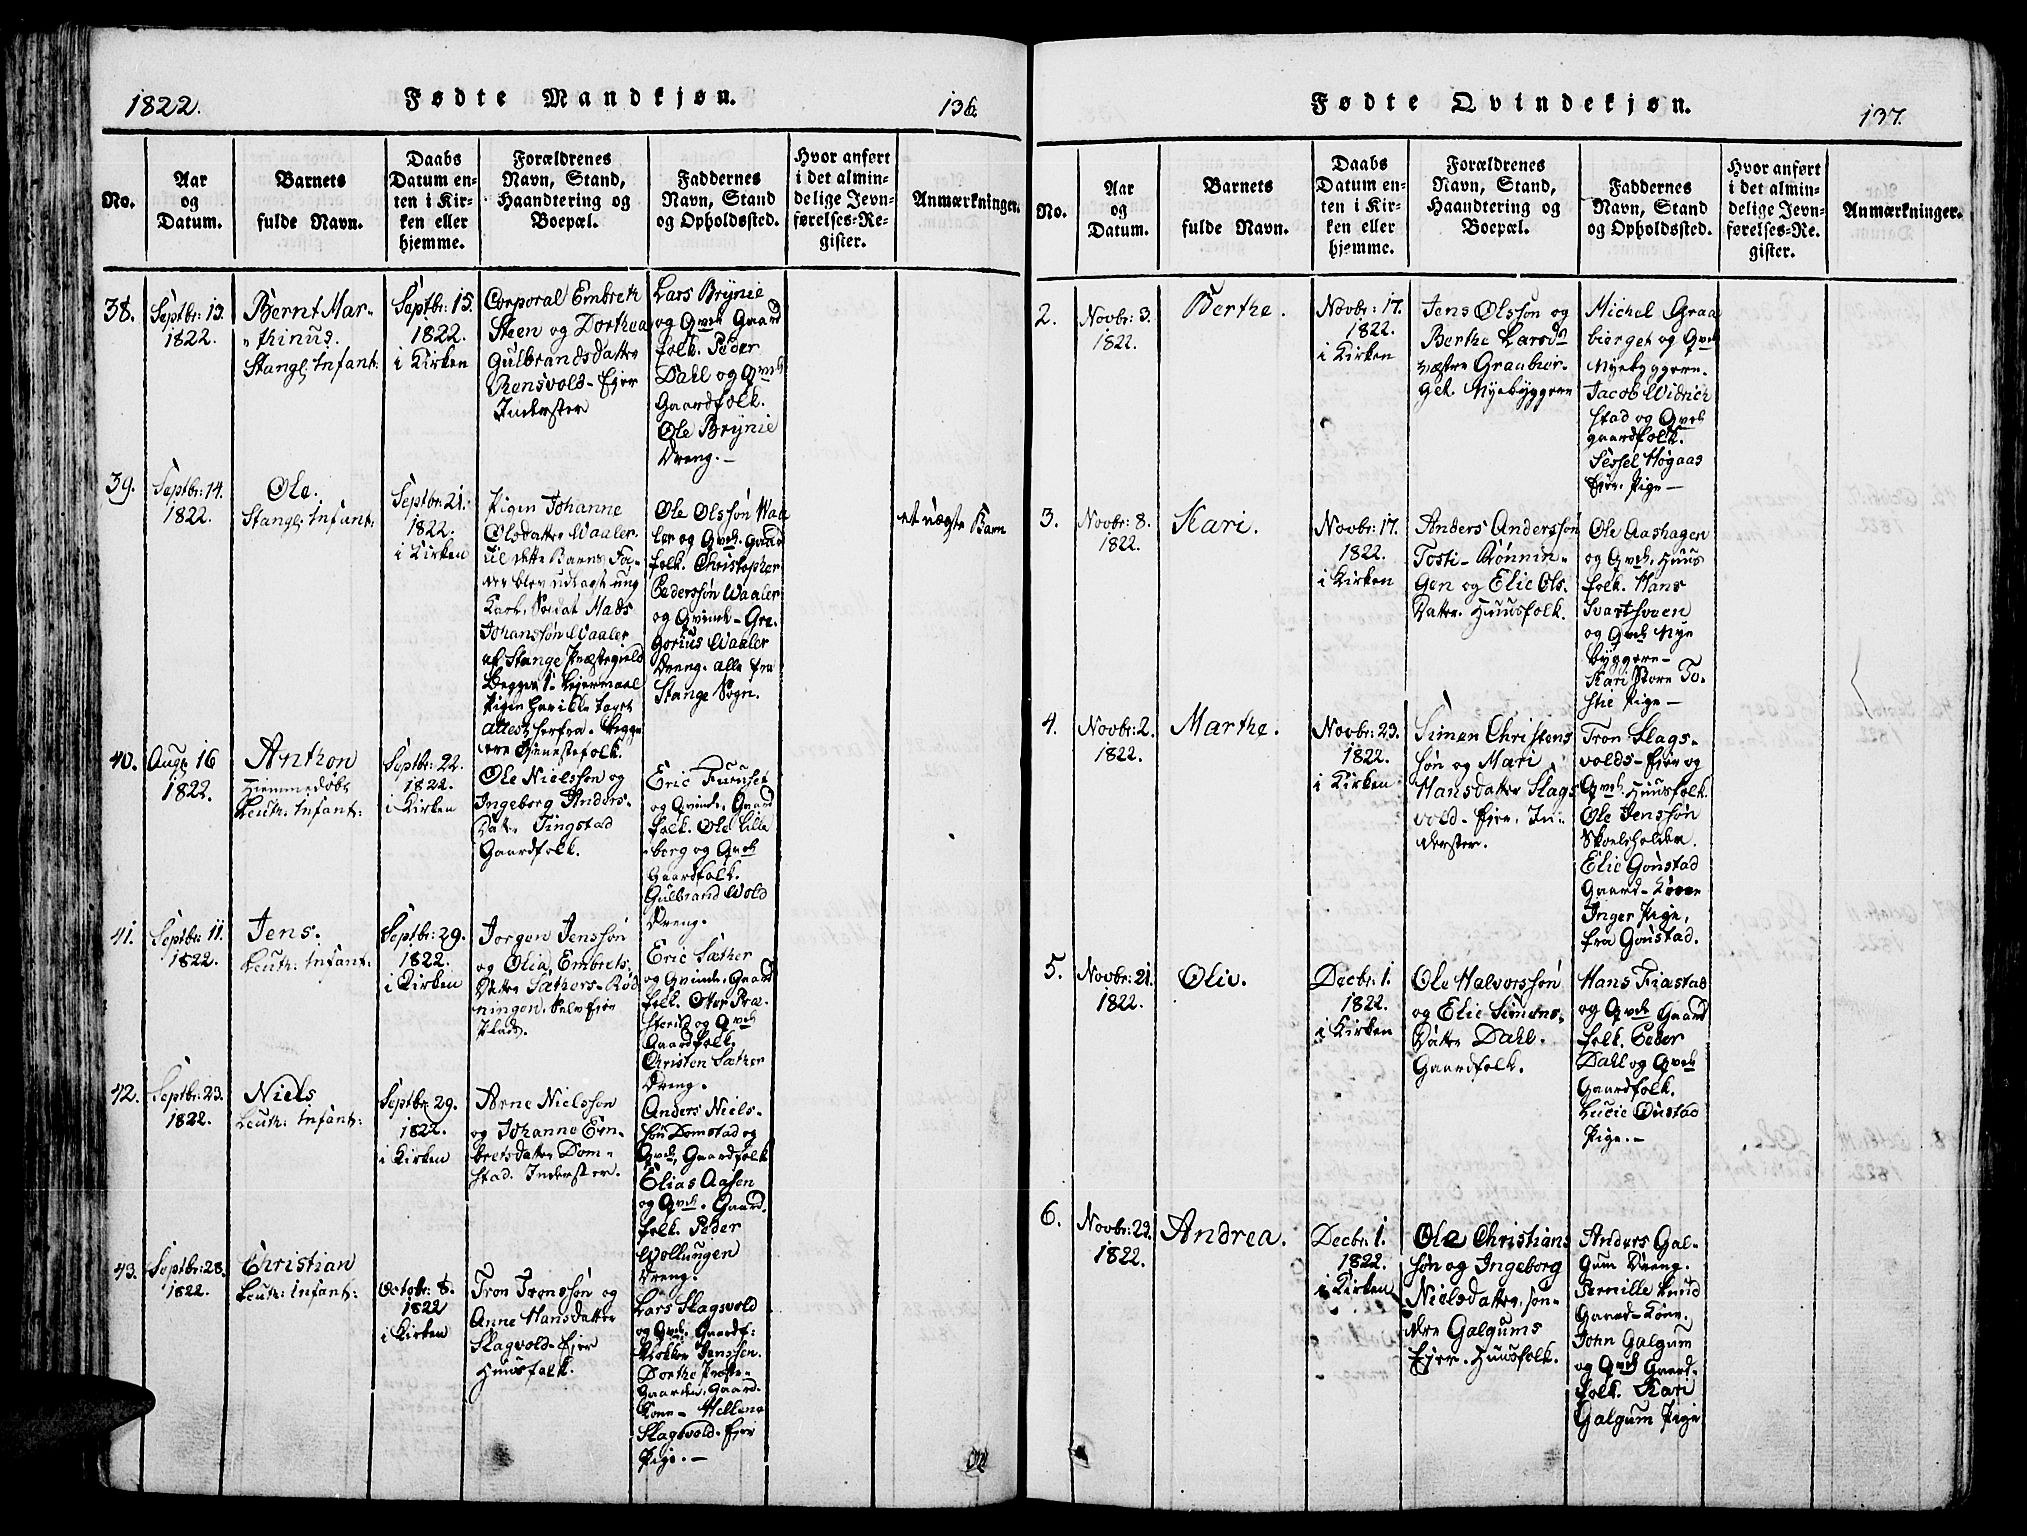 1822.
Fødte Mandkjøn.
136
No.
Aar
og
Datum.
Barnets
fulde Navn.
Daabs
Datum en-
ten i Kir-
ken eller
hjemme.
Forældrenes
Navn, Stand,
Haandtering og
Boepæl.
Faddernes
Navn, Stand
og Opholdssted.
Hvor anført
i det almin-
delige Jevn-
førelses-Re-
gister.
Anmærkninger.
38.
Septbr: 13.
1822.
Bernt Mar-
thinus.
Stangl: Infant:
Septbr: 15.
1822.
i Kirken
Corporal Embret
Steen og Dorthea
Gulbrandsdatter
Rensvold-Ejer
Inderster
Lars Brÿnie
og Qvde Gaard
folk. Peder
Dahl og Qvde
Gaardfolk.
Ole Brÿnie
Dreng.—
39.
Septbr: 14.
1822.
Ole.
Stangl: Infant:
Septbr: 21.
1822.
i Kirken
Pigen Johanne
Olsdatter Waaler
til dette Barns Fa-
der blev udlagt ung
Karl, Soldat Mads
Johanssøn Waaler
af Stange Præstegield
Begges 1. Leiermaal
Pigen har ikke taget
Attest herfra. Begge
ere Tjenestefolk.
Ole Olssøn Waa
ler og Qvde. Gaard
folk. Christopher
Pederssøn Waaler
og Qvinde- Gre-
gorius Waaler
Dreng. alle fra
Stange Sogn.
et uægte Barn
40.
Aug: 16
1822.
Anthon
Hiemmedøbt
Leuth: Infant:
Septbr: 22.
1822.
i Kirken
Ole Nielssøn og
Ingeborg Anders-
Datter Tingstad
Gaardfolk.
Eric Furuset
og Qvinde, Gaard
folk. Ole Lille
borg og Qvde
Gaardfolk.
Gulbrand Wold
Dreng.
41.
Septbr: 11.
1822.
Jens.
Leuth: Infant:
Septbr: 29.
1822.
i Kirken
Jorgen Jenssøn
og Olia Embrets-
Datter Sæthers-Rød
ningen, Selvejer
Plads.
Eric Sæther
og Qvinde, Gaard
folk. Oter Præ-
sterud og Qvde
Gaardfolk.
Christen Sæther
Dreng.
42.
Septbr: 23.
1822.
Niels
Leuth: Infant:
Septbr: 29.
1822.
i Kirken
Arne Nielssøn
og Johanne Em-
bretsdatter Dom-
stad. Inderster.
Anders Niels-
søn Domstad og
Qvde, Gaardfolk
Elias Aasen
og Qvde. Gaard
folk. Peder
Wollungen
Dreng.
43.
Septbr: 28.
1822.
Christian
Leuth: Infant:
Octobr: 8.
1822
i Kirken
Tron Tronssøn og
Anne Hansdatter
Slagvold-Ejer
Huusfolk.
Lars Slagsvold
og Qvde, Gaardf:
Klokker Jenssen.
Dorthe Præste-
Gaarden, Gaard-
Kone- Hellene
Slagsvold-Ejer
Pige.—
Fødte Qvindekjøn.
137.
No.
Aar
og
Datum.
Barnets
fulde Navn.
Daabs
Datum en-
ten i Kir-
ken eller
hjemme.
Forældrenes
Navn, Stand,
Haandtering og
Boepæl.
Faddernes
Navn, Stand
og Opholdssted.
Hvor anført
i det almin-
delige Jevn-
førelses-Re-
gister.
Anmærkninger.
2.
Novbr: 3.
1822.
Berthe.
Novbr: 17.
1822.
i Kirken
Jens Olssøn og
Berthe Larsda
Graabier-
get Nyebyggere
Michel Graa
bierget og Qvde
Nyebyggere.
Jacob Widrich
stad og Qvde
gaardfolk.
Sessel Høgaas
Ejer. Pige—
3.
Novbr: 8.
1822.
Kari.
Novbr: 17.
1822.
i Kirken
Anders Anderssøn
Tosti-Rønnin-
gen og Elie Ols
Datter. Huusfolk.
Ole Aashagen
og Qvde, Huus
folk. Hans
Svarthoen
og Qvde Nye
byggere-
Kari Store To-
stie Pige—
4.
Novbr: 2.
1822.
Marthe.
Novbr: 23.
1822.
i Kirken
Simen Christens
søn og Mari
Hansdatter Slags
vold-Ejer, In-
derster.
Tron Slags-
volds-Ejer og
Qvde. Huusfolk.
Ole Jenssøn
Skoleholder.
Elie Gonstad
Gaard-Kone
Inger Pige,
fra Gonstad.
5.
Novbr: 21.
1822.
Oliv.
Decbr: 1.
1822.
i Kirken
Ole Halvorssøn
og Elie Simens-
Datter Dahl.
Gaardfolk.
Hans Fiæstad
og Qvde Gaard
folk. Peder
Dahl og Qvde
Gaardfolk.
Lucie Oustad
Pige.—
6.
Novbr: 29.
1822.
Andrea.
Decbr: 1.
1822.
i Kirken
Ole Christians
søn og Ingeborg
Nielsdatter, søn-
dre Galgums
Ejer. Huusfolk.
Anders Gal-
gum Dreng.
Pernille Knud
Gaard-Kone.
John Galgum
og Qvde Gaard-
folk. Kari
Galgum Pige